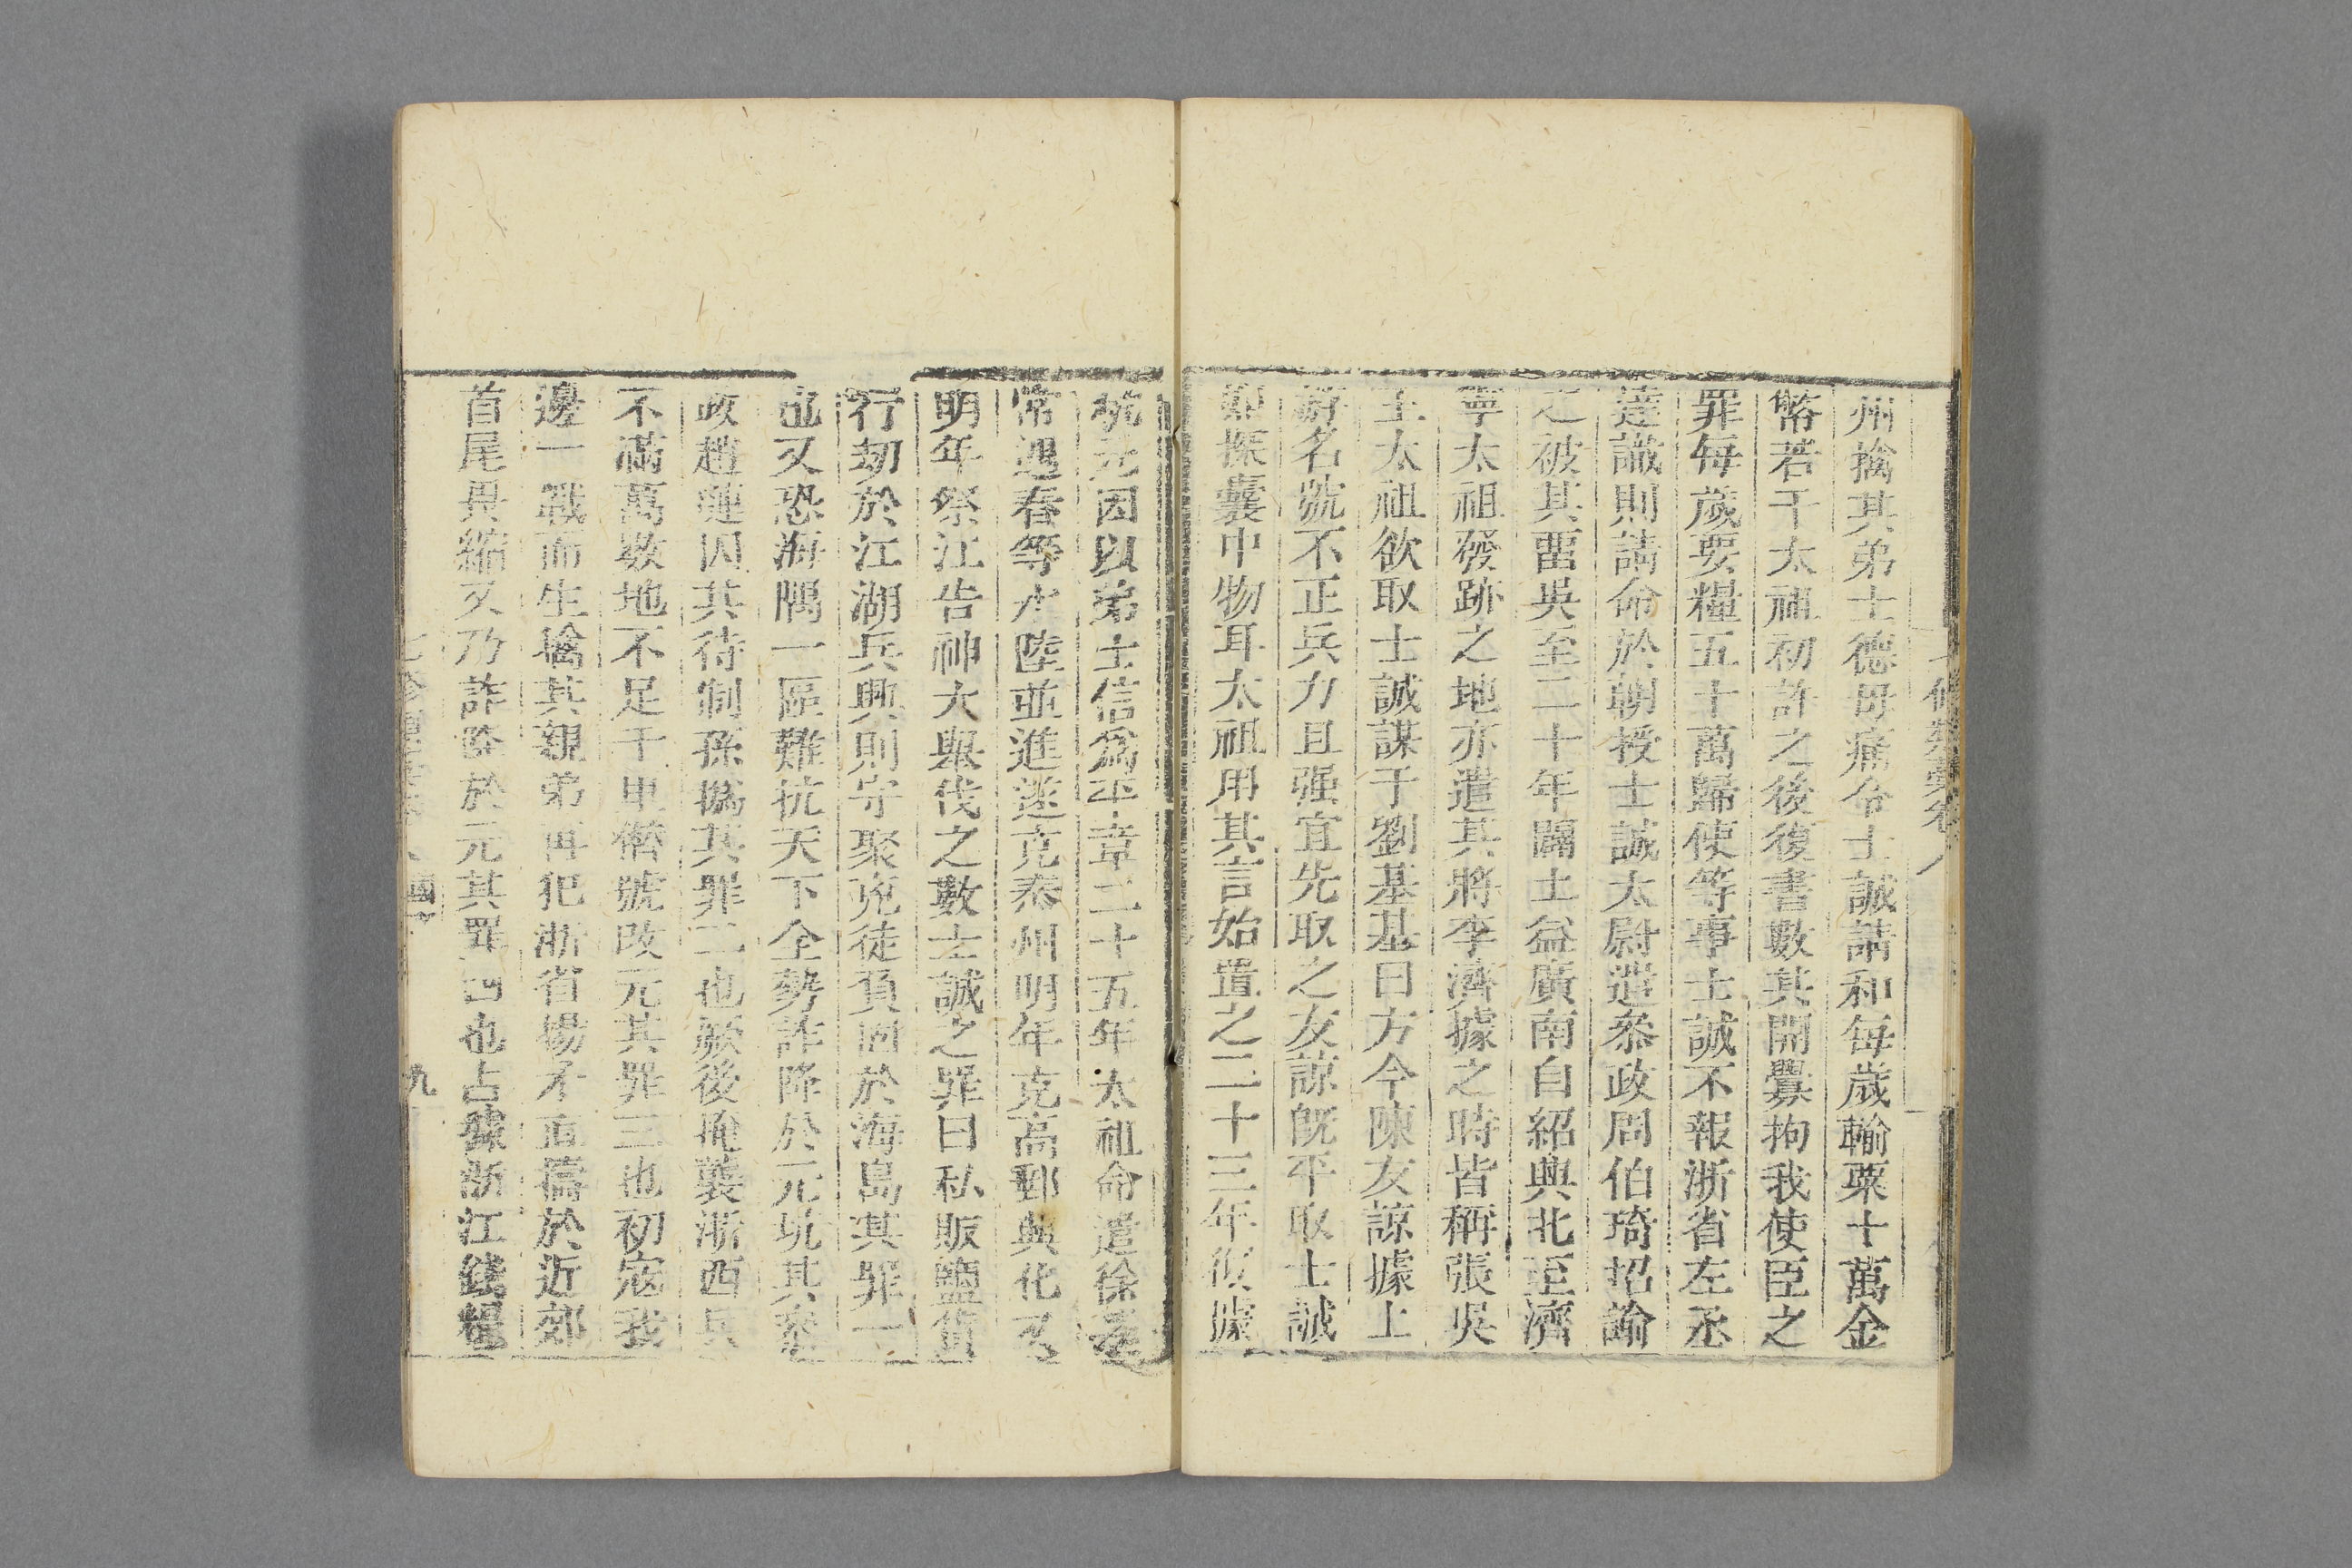 七修類藁卷八
州擒其弟士德母痛令士誠請和每歲輸粟十萬金
幣若干太祖初許之後復書數其開釁拘我使臣之
罪每歲要糧五十萬歸使等事士誠不報浙省左丞
達識則請命於朝授士誠太尉遣叅政周伯琦招諭
之被其畱吳至二十年闢土益廣南自紹興北至濟
寧太祖發跡之地亦遣其將李濟據之時皆稱張吳
王太祖欲取士誠謀于劉基基曰方今陳友諒據上
游名號不正兵力且强宜先取之友諒旣平取士誠
如探囊中物耳太祖用其言始置之二十三年復據
杭元因以弟士信爲平章二十五年太祖命遣徐達
常遇春等水陸並進遂克泰州明年克高郵興化又
明年祭江告神大舉伐之數士誠之罪曰私販鹽貨
行刼於江湖兵興則守聚兇徒負固於海島其罪一
也又恐海隅一區難抗天下全勢詐降於元坑其叅
政趙璉囚其待制孫撝其罪二也厥後掩襲浙西兵
不滿萬數地不足千里僭號改元其罪三也初宼我
邊一戰而生擒其親弟再犯浙省揚矛直擣於近郊
首尾畏縮又乃詐降於元其罪四也占據浙江錢糧
九